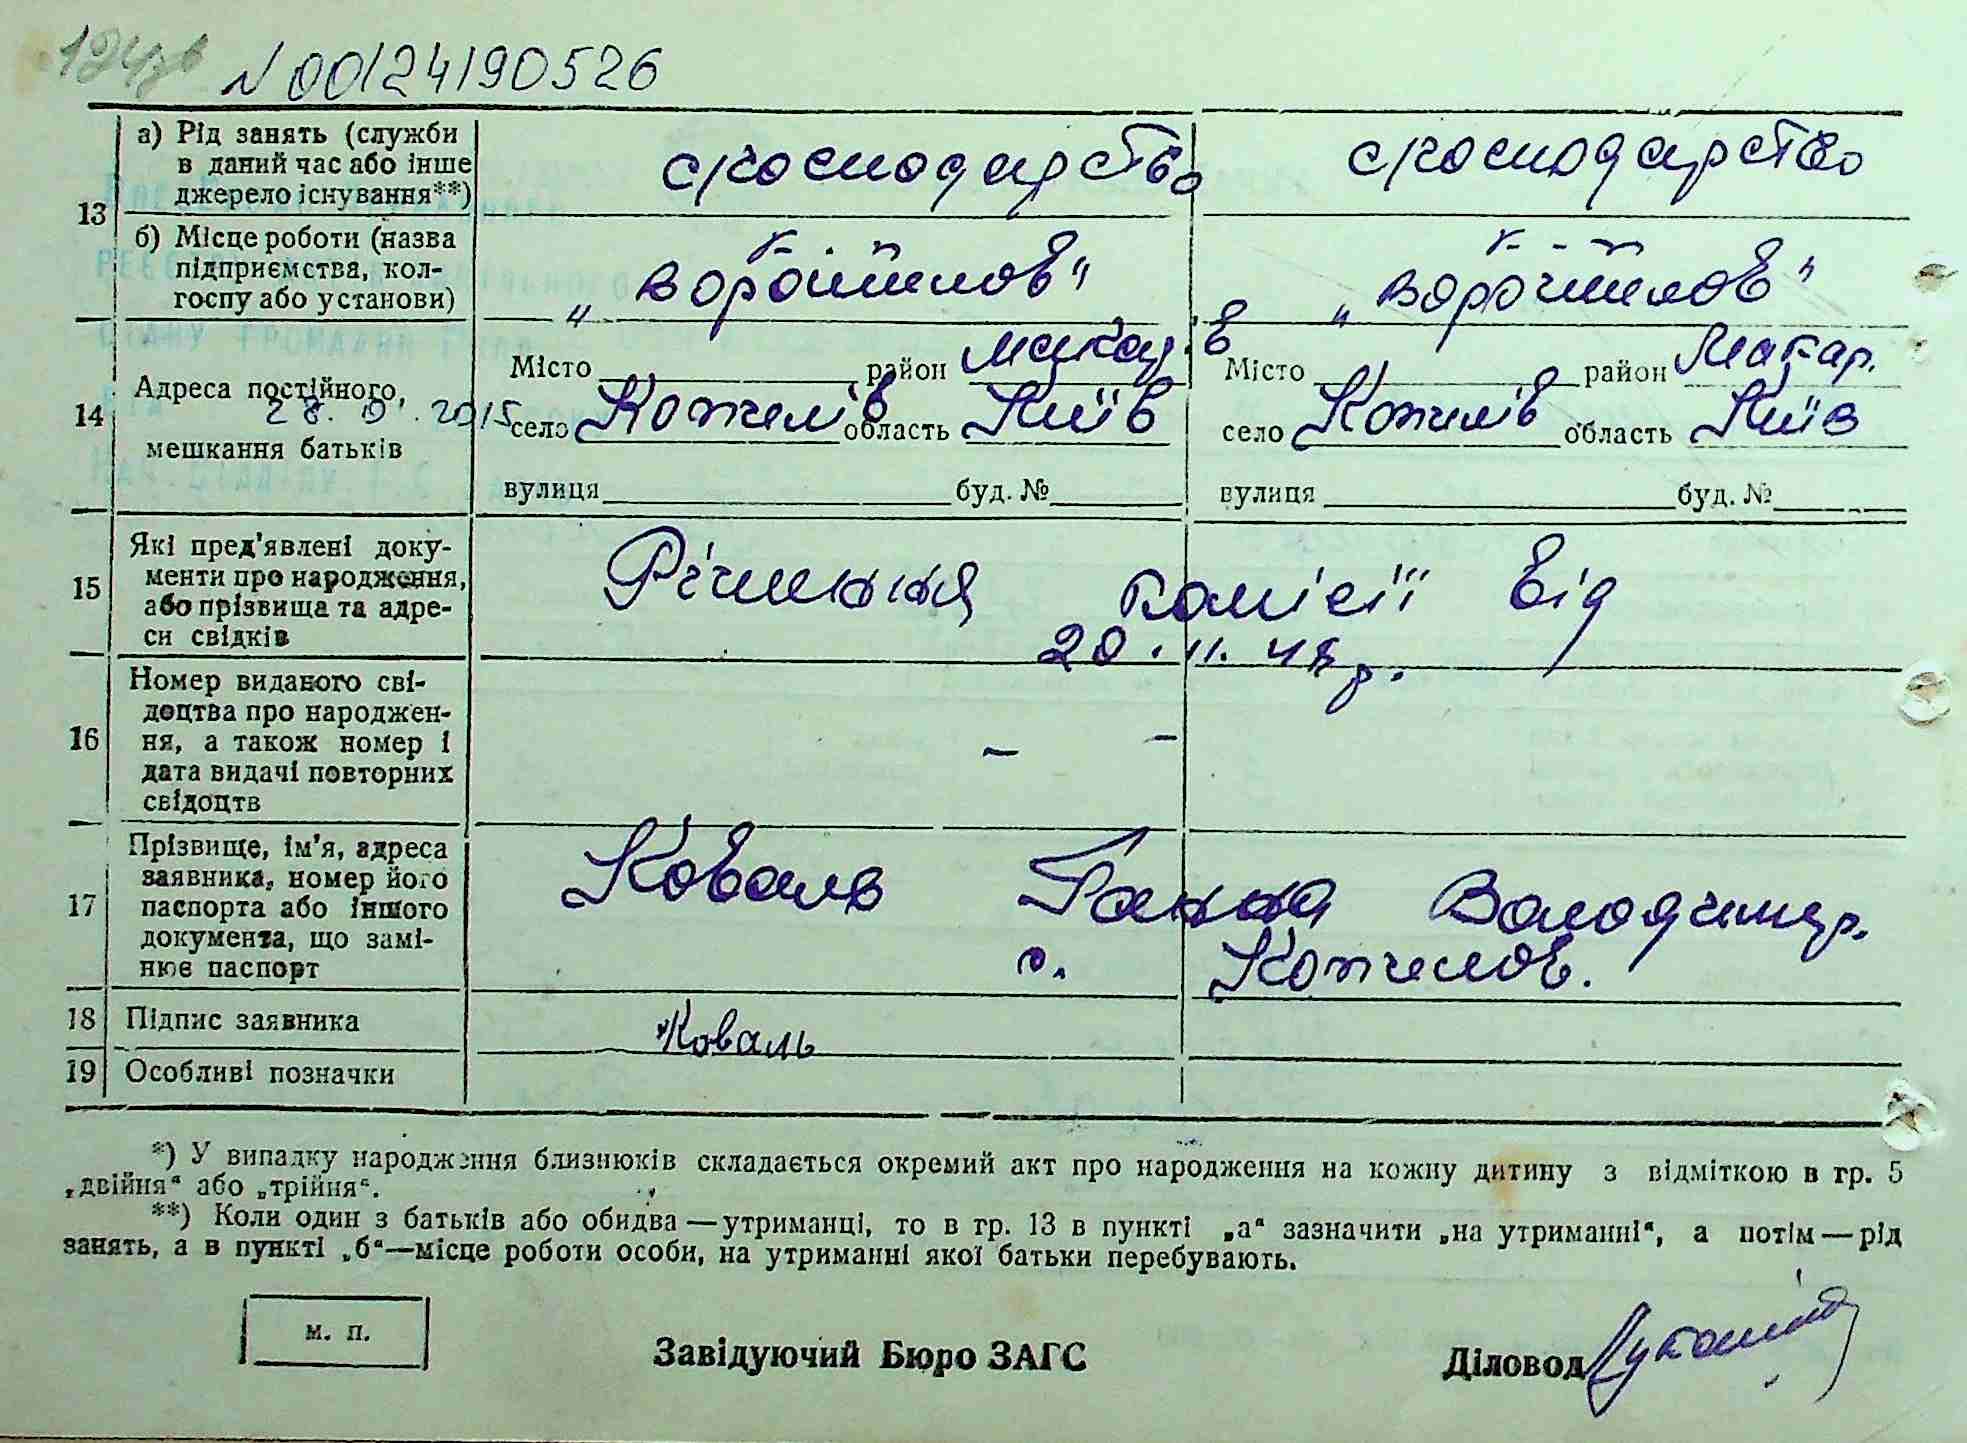 N 00124190526
13
а) Рід занять (служби
в даний час або інше
джерело існування**)
с/господарство
с/господарство
б) Місце роботи (назва
підприємства, кол-
госпу або установи)
к-п
„Ворошилов“
к-п
„Ворошилов“
14
Адреса постійного,
мешкання батьків
Місто район Макар.
село Копилів область Київ
вулиця буд. №
Місто район Макар.
село Копилів область Київ
вулиця буд. №
15
Які пред'явлені доку-
менти про народження,
або прізвища та адре-
си свідків
Рішення комісії від
20.11.48 р.
16
Номер виданого сві-
доцтва про народжен-
ня, а також номер і
дата видачі повторних
свідоцтв
— —
17
Прізвище, ім'я, адреса
заявника, номер його
паспорта або іншого
документа, що замі-
нює паспорт
Коваль Ганна Володимир.
с. Копилов.
18 Підпис заявника
Коваль
19 Особливі позначки
*) У випадку народження близнюків складається окремий акт про народження на кожну дитину з відміткою в гр. 5
„двійня“ або „трійня“.
**) Коли один з батьків або обидва — утриманці, то в гр. 13 в пункті „а“ зазначити „на утриманні“, а потім — рід
занять, а в пункті „б“—місце роботи особи, на утриманні якої батьки перебувають.
м. п.
Завідуючий Бюро ЗАГС
Діловод